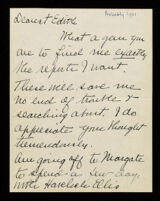 Probably 1921
Dearest Edith
What a gem you
are to find me exactly
the reports I want.
These will save me
no end of trouble &
searching about. I do
appreciate your thought
tremendously.
Am going off to Margate
to spend a few days
with Havelock Ellis